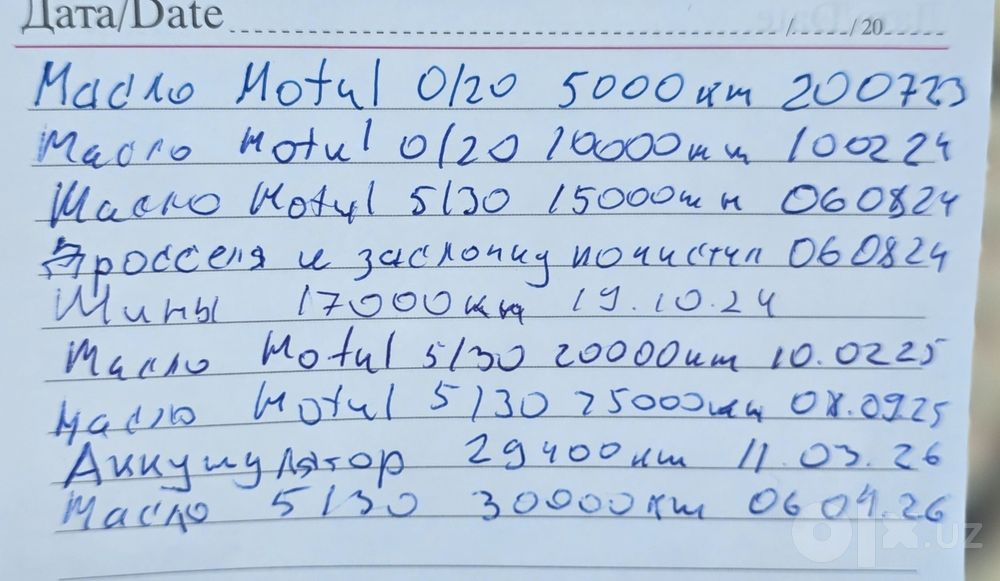 Дата/Date / / 20
Масло Motul 0/20 5000км 200723
Масло Motul 0/20 10000км 100224
Масло Motul 5/30 15000км 060824
Дросселя и заслонку почистил 060824
Шины 17000км 19.10.24
Масло Motul 5/30 20000км 10.0225
Масло Motul 5/30 25000км 08.0925
Аккумулятор 29400км 11.03.26
Масло 5/30 30000км 0604.26
olx.uz